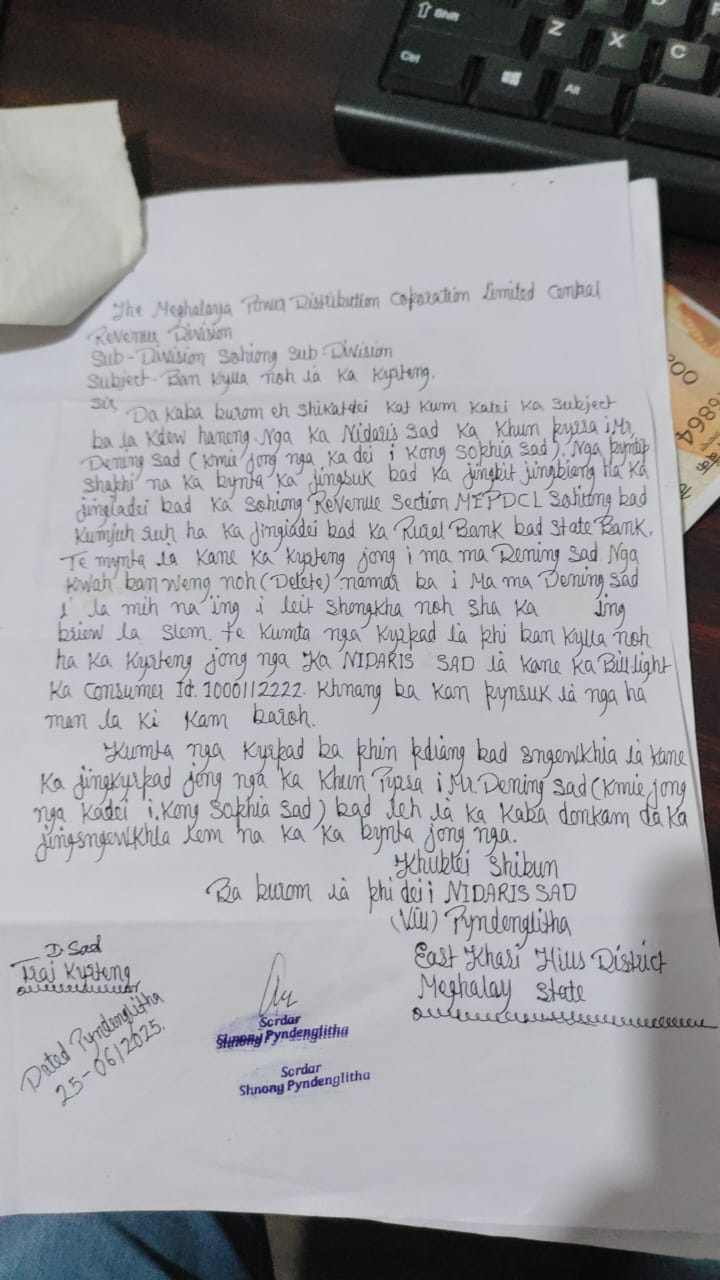 The Meghalaya Power Distribution Coporation Limited Central
Revenue Division
Sub-Division Sohiong Sub-Division
Subject- Ban Kylla noh ïa ka Kyrteng.
Sir,
Da kaba burom eh shikatdei kat kum katei ka Subject
ba la kdew haneng. Nga ka Nidaris Sad ka khun pyrsa i Mr.
Dening Sad (kmie jong nga ka dei i Kong Sophia Sad). Nga pyntip
shakhi na ka bynta ka jingsuk bad ka jingbit jingbiang ha ka
jingïadei bad ka Sohiong Revenue Section MEPDCL Sohiong bad
kumjuh ruh ha ka jingïadei bad ka Rural Bank bad State Bank.
Te mynta ïa kane ka kyrteng jong i ma ma Dening Sad Nga
kwah ban weng noh (Delete) namar ba i Ma ma Dening Sad
i la mih na ïng i leit shongkha noh sha ka ïng
briew la slem. Te kumta nga kyrpad ïa phi ban kylla noh
ha ka kyrteng jong nga ka NIDARIS SAD ïa kane ka Bill light
ka Consumer Id. 1000112222. Khnang ba kan pynsuk ïa nga ha
man la ki kam baroh.
Kumta nga kyrpad ba phin pdiang bad sngewkhia ïa kane
ka jingkyrpad jong nga ka khun Pyrsa i Mr. Dening Sad (kmie jong
nga kadei i. Kong Sophia Sad) bad leh ïa ka kaba donkam da ka
jingsngewkhia lem na ka ka bynta jong nga.
Khublei Shibun
Ba burom ïa phi dei i NIDARIS SAD
(Vill) Pyndenglitha
East Khasi Hills District
Meghalay State
D. Sad
Trai Kyrteng
Dated Pyndenglitha
25-06/2025.
Sordar
Shnong Pyndenglitha
Sordar
Shnong Pyndenglitha
Shift
Z
X
C
Ctrl
Alt